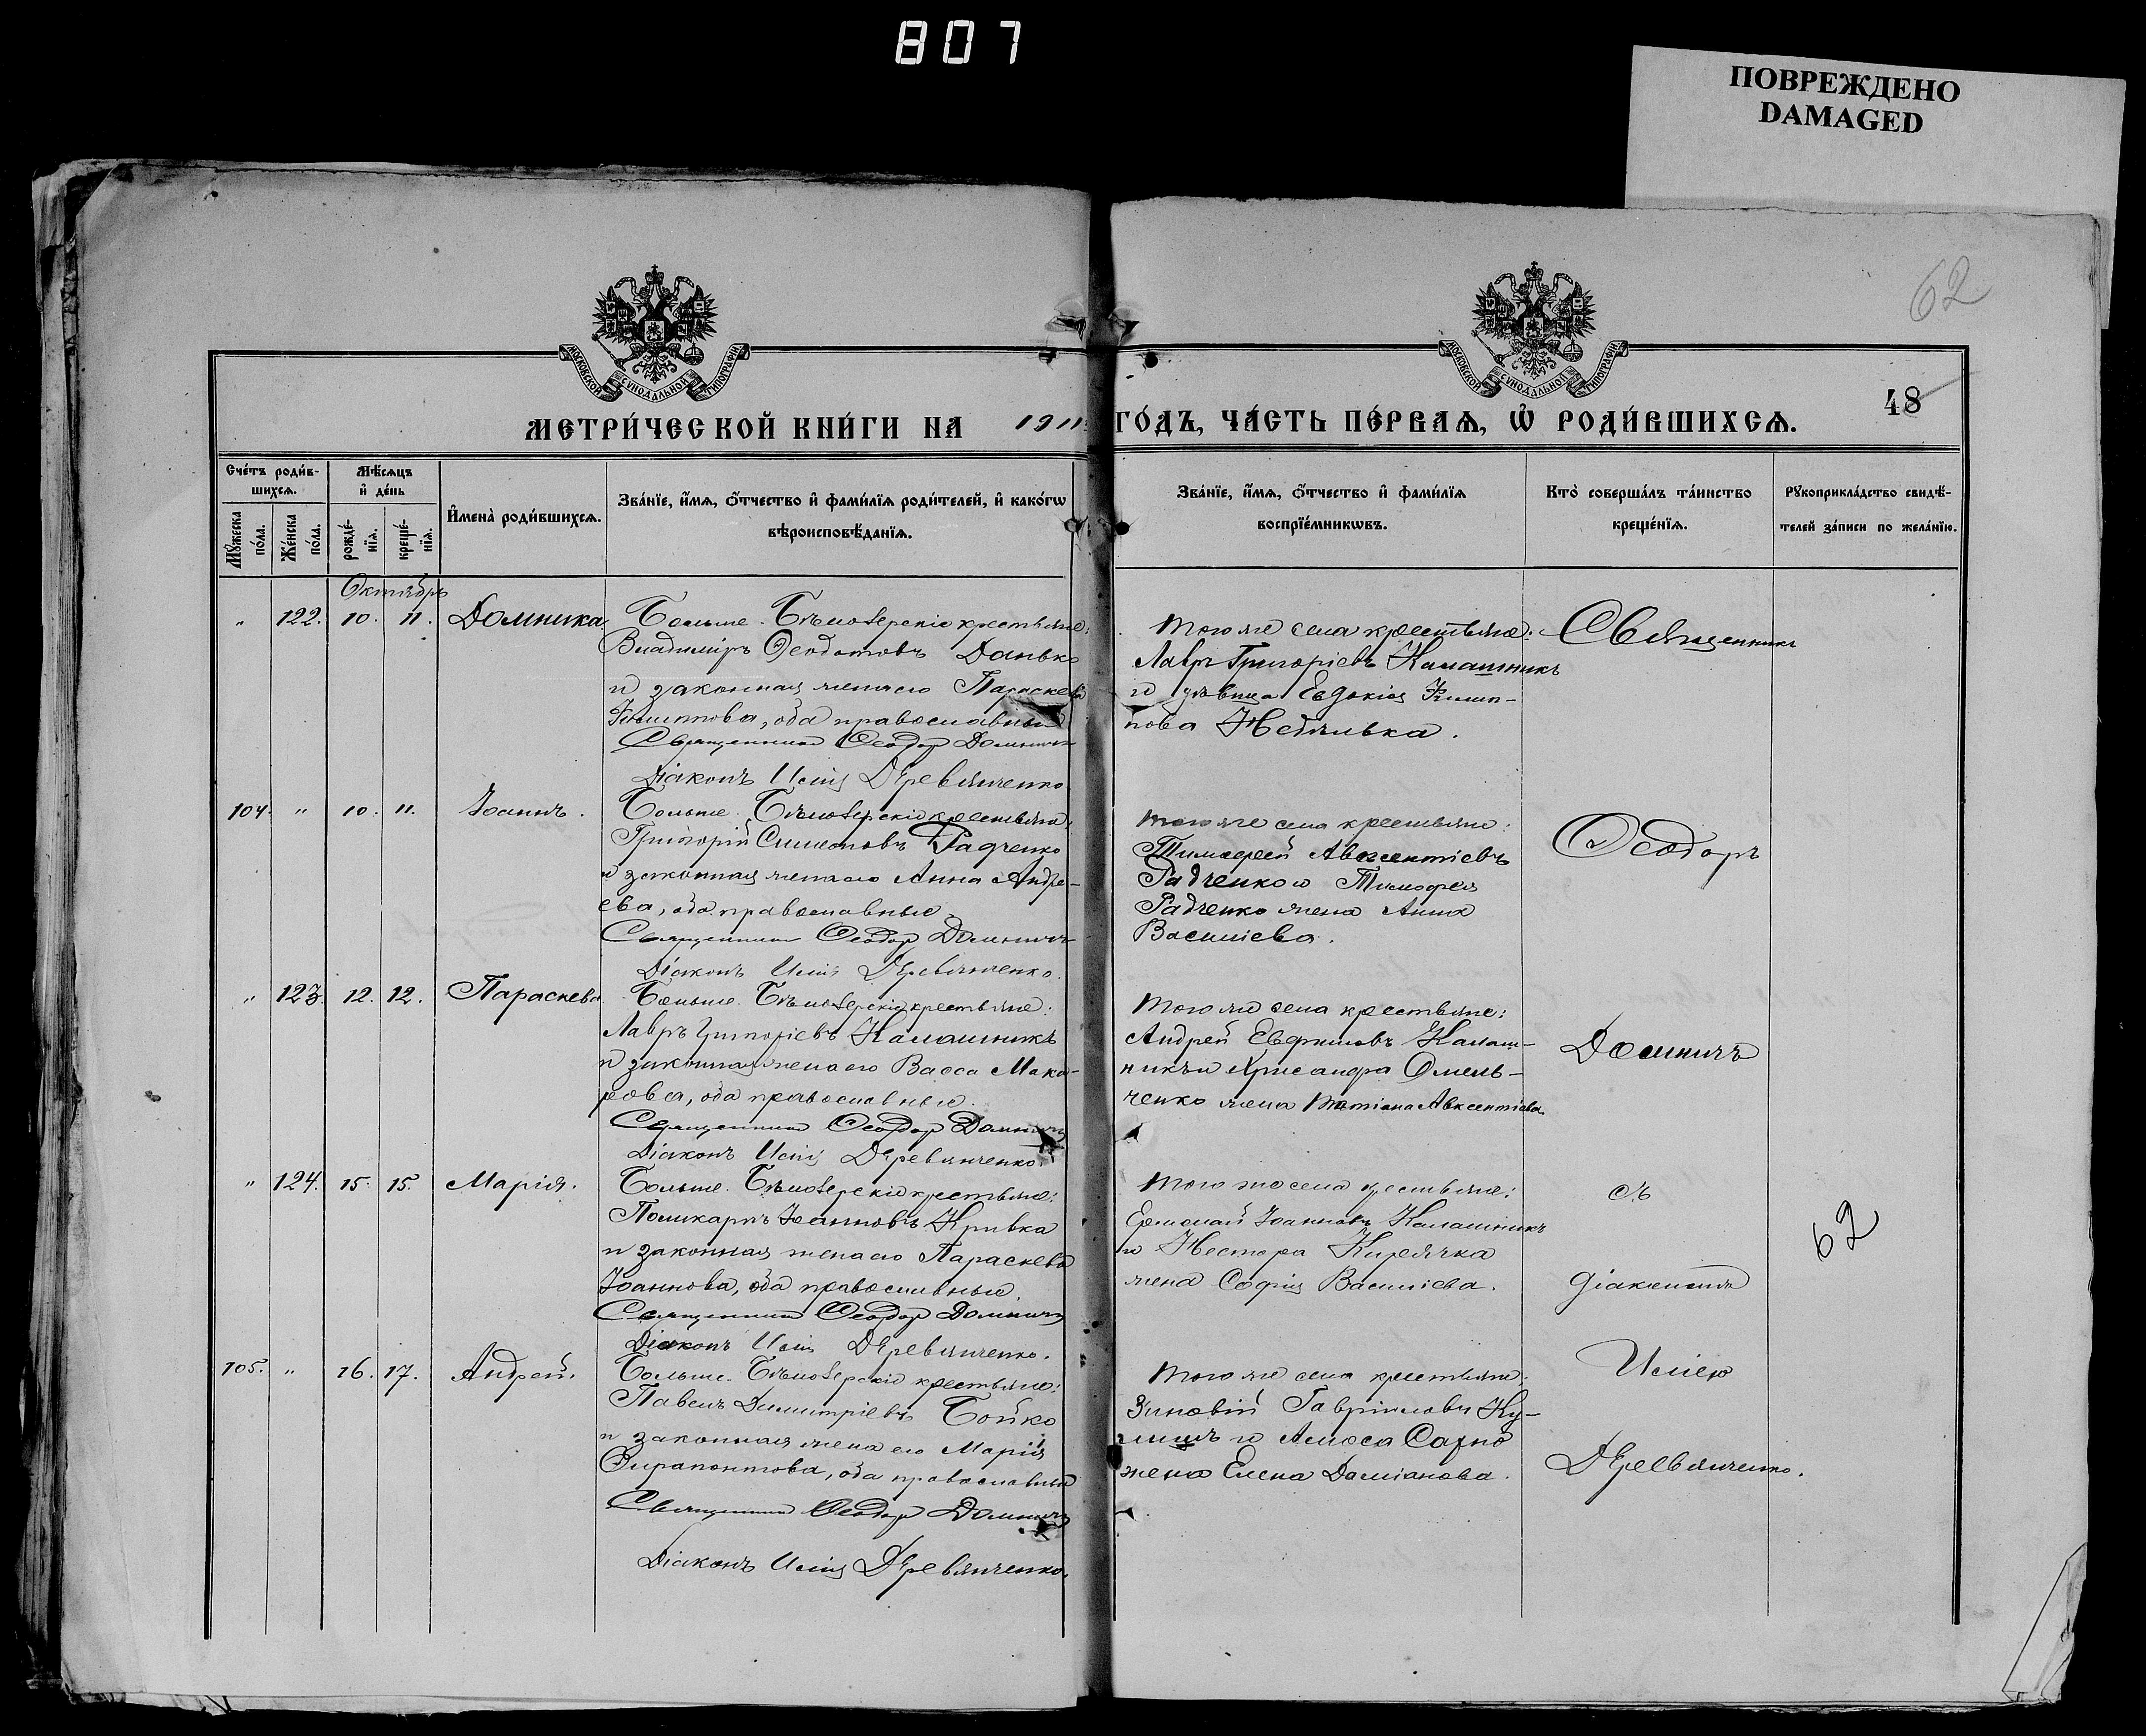 807
ПОВРЕЖДЕНО
DAMAGED
62
48
МОСКОВСКОЙ СѴНОДАЛЬНОЙ ТИПОГРАФІИ
МОСКОВСКОЙ СѴНОДАЛЬНОЙ ТИПОГРАФІИ
МЕТРИ́ЧЕСКОЙ КНИ́ГИ НА 1911 ГО́ДЪ, ЧА́СТЬ ПЕ́РВАѦ, Ѽ РОДИ́ВШИХСѦ.
Сче́тъ роди́в-
шихсѧ.
Мꙋ́жеска по́ла.
Же́нска по́ла.
Мѣ́сѧцъ
и҆ де́нь
рожде́-
нїѧ.
креще́-
нїѧ.
И҆мена̀ роди́вшихсѧ.
Зва́нїе, и҆́мѧ, ѻ҆́тчество и҆ фами́лїѧ роди́телей, и҆ како́гѡ
вѣроисповѣ́данїѧ.
Зва́нїе, и҆́мѧ, ѻ҆́тчество и҆ фами́лїѧ
воспрїе́мникѡвъ.
Кто̀ соверша́лъ та́инство
креще́нїѧ.
Рꙋкоприкла́дство свидѣ́-
телей за́писи по жела́нїю.
Октябрь
" 122. 10. 11. Домника.
Больше-Бѣлозерскіе крестьяне:
Владиміръ Ѳеодотовъ Данько
и законная жена его Параскева
Филиппова, оба православные
Священникъ Ѳеодоръ Домничъ
Діаконъ Исаія Деревянченко
того же села крестьяне:
Лавръ Григоріевъ Калашникъ
и дѣвица Евдокія Филип-
пова Недялька.
104. " 10. 11. Іоаннъ.
Больше-Бѣлозерскіе крестьяне:
Григорій Симеоновъ Радченко
и законная жена его Анна Андре-
ева, оба православные.
Священникъ Ѳеодоръ Домничъ
Діаконъ Исаія Деревянченко.
того же села крестьяне:
Тимофей Авксентіевъ
Радченко и Тимофея
Радченко жена Анна
Василіева.
" 123. 12. 12. Параскева
Больше-Бѣлозерскіе крестьяне:
Лавръ Григоріевъ Калашникъ
и законная жена его Васса Мака-
рова, оба православные.
Священникъ Ѳеодоръ Домничъ
Діаконъ Исаія Деревянченко.
того же села крестьяне:
Андрей Евфимовъ Калаш-
никъ и Хрисанфа Омель-
ченко жена Татіана Авксентіева.
" 124. 15. 15. Марія.
Больше-Бѣлозерскіе крестьяне:
Поликарпъ Іоанновъ Кривка
и законная жена его Параскева
Іоаннова, оба православные.
Священникъ Ѳеодоръ Домничъ
Діаконъ Исаія Деревянченко.
того же села крестьяне:
Ермолай Іоанновъ Калашникъ
и Нестора
жена Софія Василіева.
105. " 16. 17. Андрей.
Больше-Бѣлозерскіе крестьяне:
Павелъ Димитріевъ Бойко
и законная жена его Марія
Ѳирапонтова, оба православные
Священникъ Ѳеодоръ Домничъ
Діаконъ Исаія Деревянченко.
того же села крестьяне:
Зиновій Гавріиловъ Ку-
лишъ и Амоса Сахно
жена Елена Даміанова.
Священникъ
Ѳеодоръ
Домничъ
съ
діакономъ
Исаіею
Деревянченко.
62